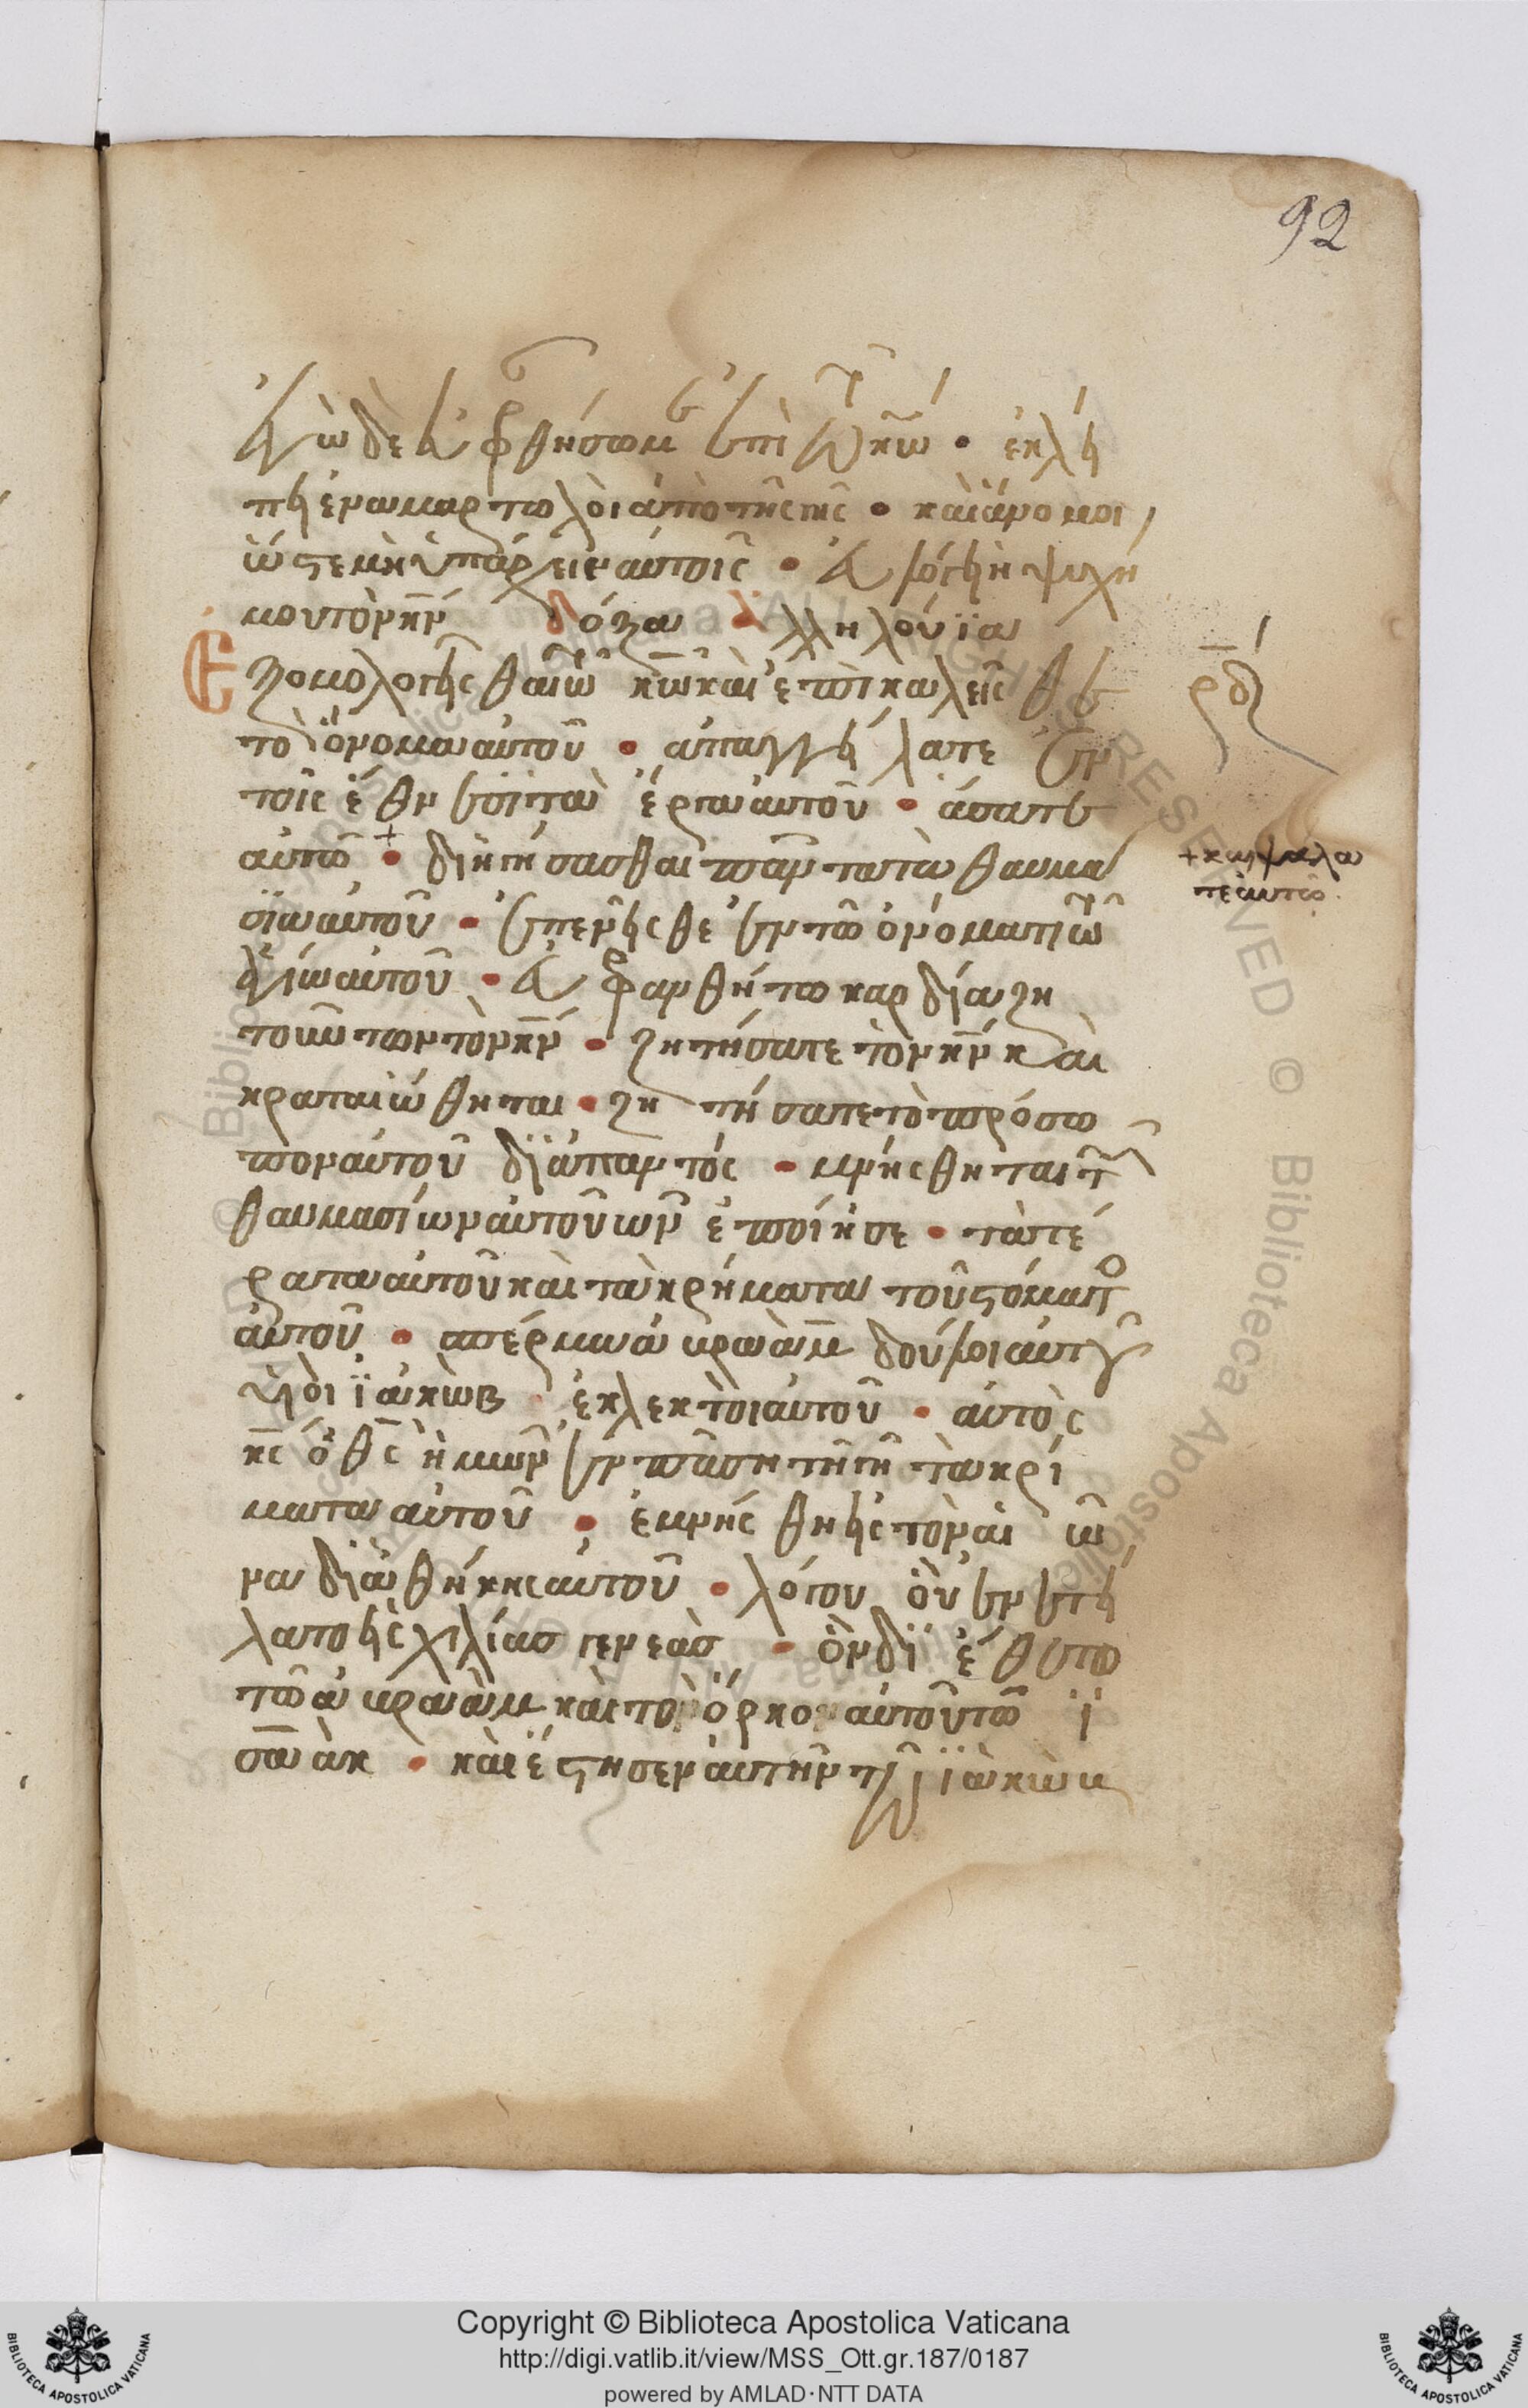 92
ἐγὼ δὲ εὐφρανθήσομαι ἐπὶ τῷ κ̅ω̅ · ἐκλεί
πειεν ἁμαρτολοὶ ἀπὸ τῆς γῆς · καὶ ἄνομοι
ὥστε μὴ ὑπάρχειν αὐτοῖς · εὐλόγει ἡ ψυχή
μου τὸν κ̅ν̅ δόξα ἀλληλούϊα
Ἐξομολογεῖσθαι τῷ κ̅ω̅ καὶ ἐπικαλεῖσθε
ρ̅δ̅
τὸ ὄνομα αὐτοῦ · ἀπαγγείλατε ἐν
τοῖς ἔθνεσϊ τὰ ἔργα αὐτοῦ · ἄσατε
αὐτῶ + · διηγήσασθαι πάντα τὰ θαυμά
+ καὶ ψάλα
τε αὐτῶ
σϊα αὐτοῦ · ἐπενεῖσθε ἐν τῶ ὀνόματι τῶ
ἁγίω αὐτοῦ · εὐφρανθήτω καρδία ζη
τούντων τὸν κ̅ν̅ · ζητήσατε τὸν κ̅ν̅ καὶ
κραταιώθηται · ζητήσατε τὸ πρόσω
πον αὐτοῦ δϊάπαντός · μνήσθηται τῶν
θαυμασίων αὐτοῦ ὧν ἐποίησε · τὰ τέ
ρατα αὐτοῦ καὶ τὰ κρήματα τοῦ στόματος
αὐτοῦ · σπέρμα ἀβραὰμ δοῦλοι αὐτοῦ
υἱοὶ ϊἀκὼβ ἐκλεκτοὶ αὐτοῦ · αὐτὸς
κ̅ς̅ ὁ θ̅ς̅ ἡμῶν ἐν πάση τῆ γῆ τὰ κρί
ματα αὐτοῦ · ἐμνήσθη εἰς τὸν αἰῶ
να διαθήκης αὐτοῦ · λόγου οὗ ἐνετεί
λατο εἰς χιλίας γενεὰσ · ὃν δϊέθετο
τῶ ἀβραὰμ καὶ τοῦ ὅρκου αὐτοῦ τῶ ϊ
σαὰκ · καὶ ἔστησεν αὐτὴν τῷ ϊἀκὼβ
Copyright © Biblioteca Apostolica Vaticana
http://digi.vatlib.it/view/MSS_Ott.gr.187/0187
powered by AMLAD·NTT DATA